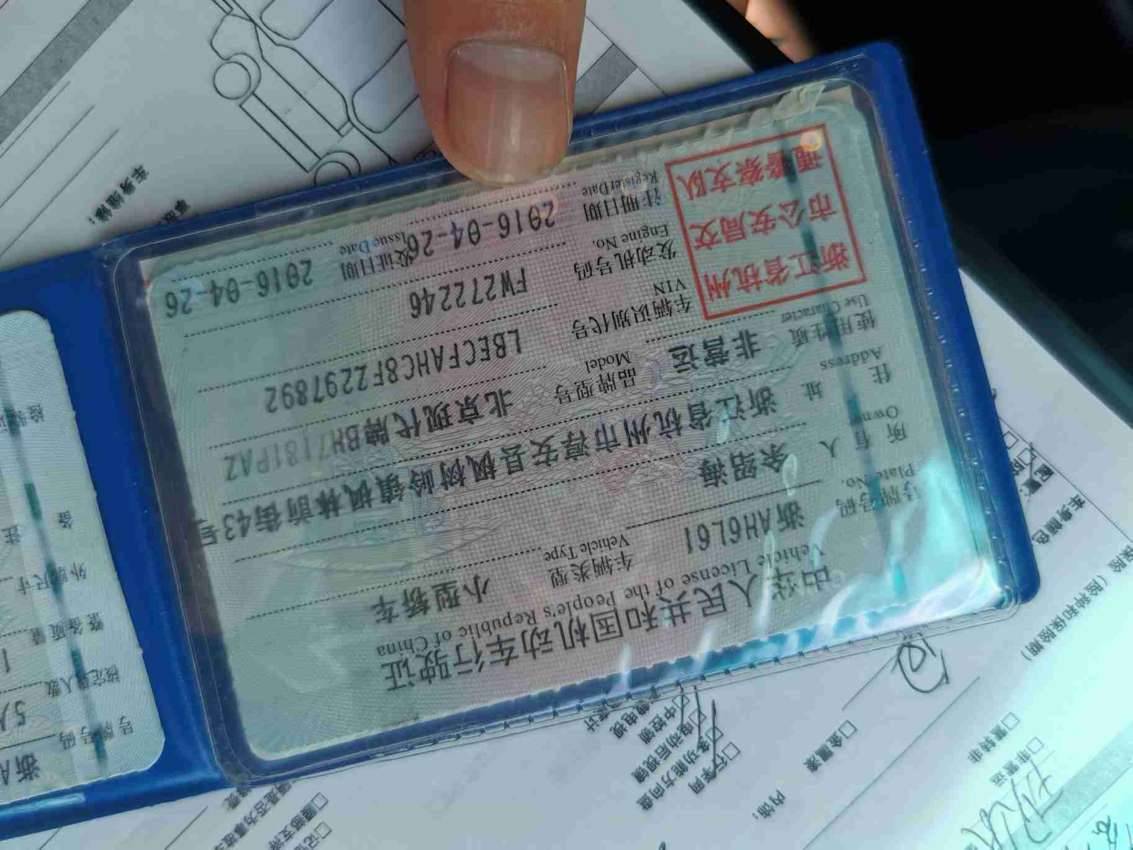 中华人民共和国机动车行驶证
Vehicle License of the People's Republic of China
号牌号码 浙AH6L61 车辆类型 小型轿车
Plate No. Vehicle Type
所有人 余绍海
Owner
住址 浙江省杭州市淳安县枫树岭镇枫林首街43号
Address
使用性质 非营运 品牌型号 北京现代牌BH7181PAZ
Use Character Model
浙江省杭州
市公安局交
通警察支队
车辆识别代号 LBECFAHC8FZ297892
VIN
发动机号码 FW272246
Engine No.
注册日期 2016-04-26 发证日期 2016-04-26
Register Date Issue Date
号牌号码 浙A
核定载人数 5人
整备质量 1
外廓尺寸
备注
检验
车身颜色
保险(险种和保险期)
内饰:
金属漆
非营运
营转非
多功能方向盘
电动后视镜